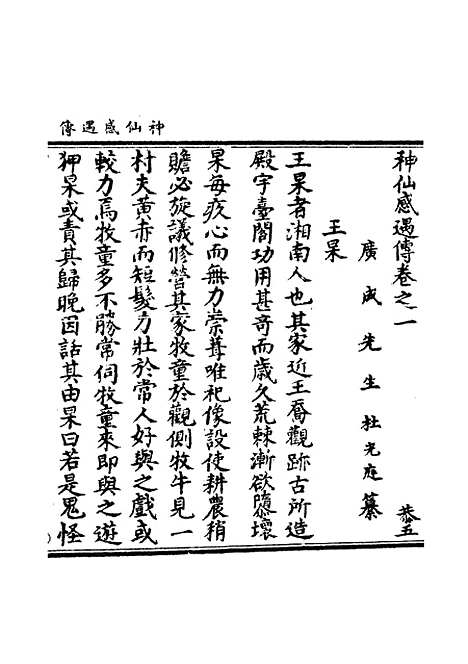 神仙感遇傳
神仙感遇傳卷之一
恭五
廣成先生杜光庭纂
王杲
王杲者湘南人也其家近王喬觀跡古所造
殿宇臺閣功用甚奇而歲久荒棘漸欲隳壞
杲每疚心而無力崇葺唯祀像設使耕農稍
贍必旋議修營其家牧童於觀側牧牛見一
村夫黃赤而短髮力壯於常人好與之戲或
較力焉牧童多不勝常伺牧童來即與之遊
狎杲或責其歸晚因話其由杲曰若是鬼怪